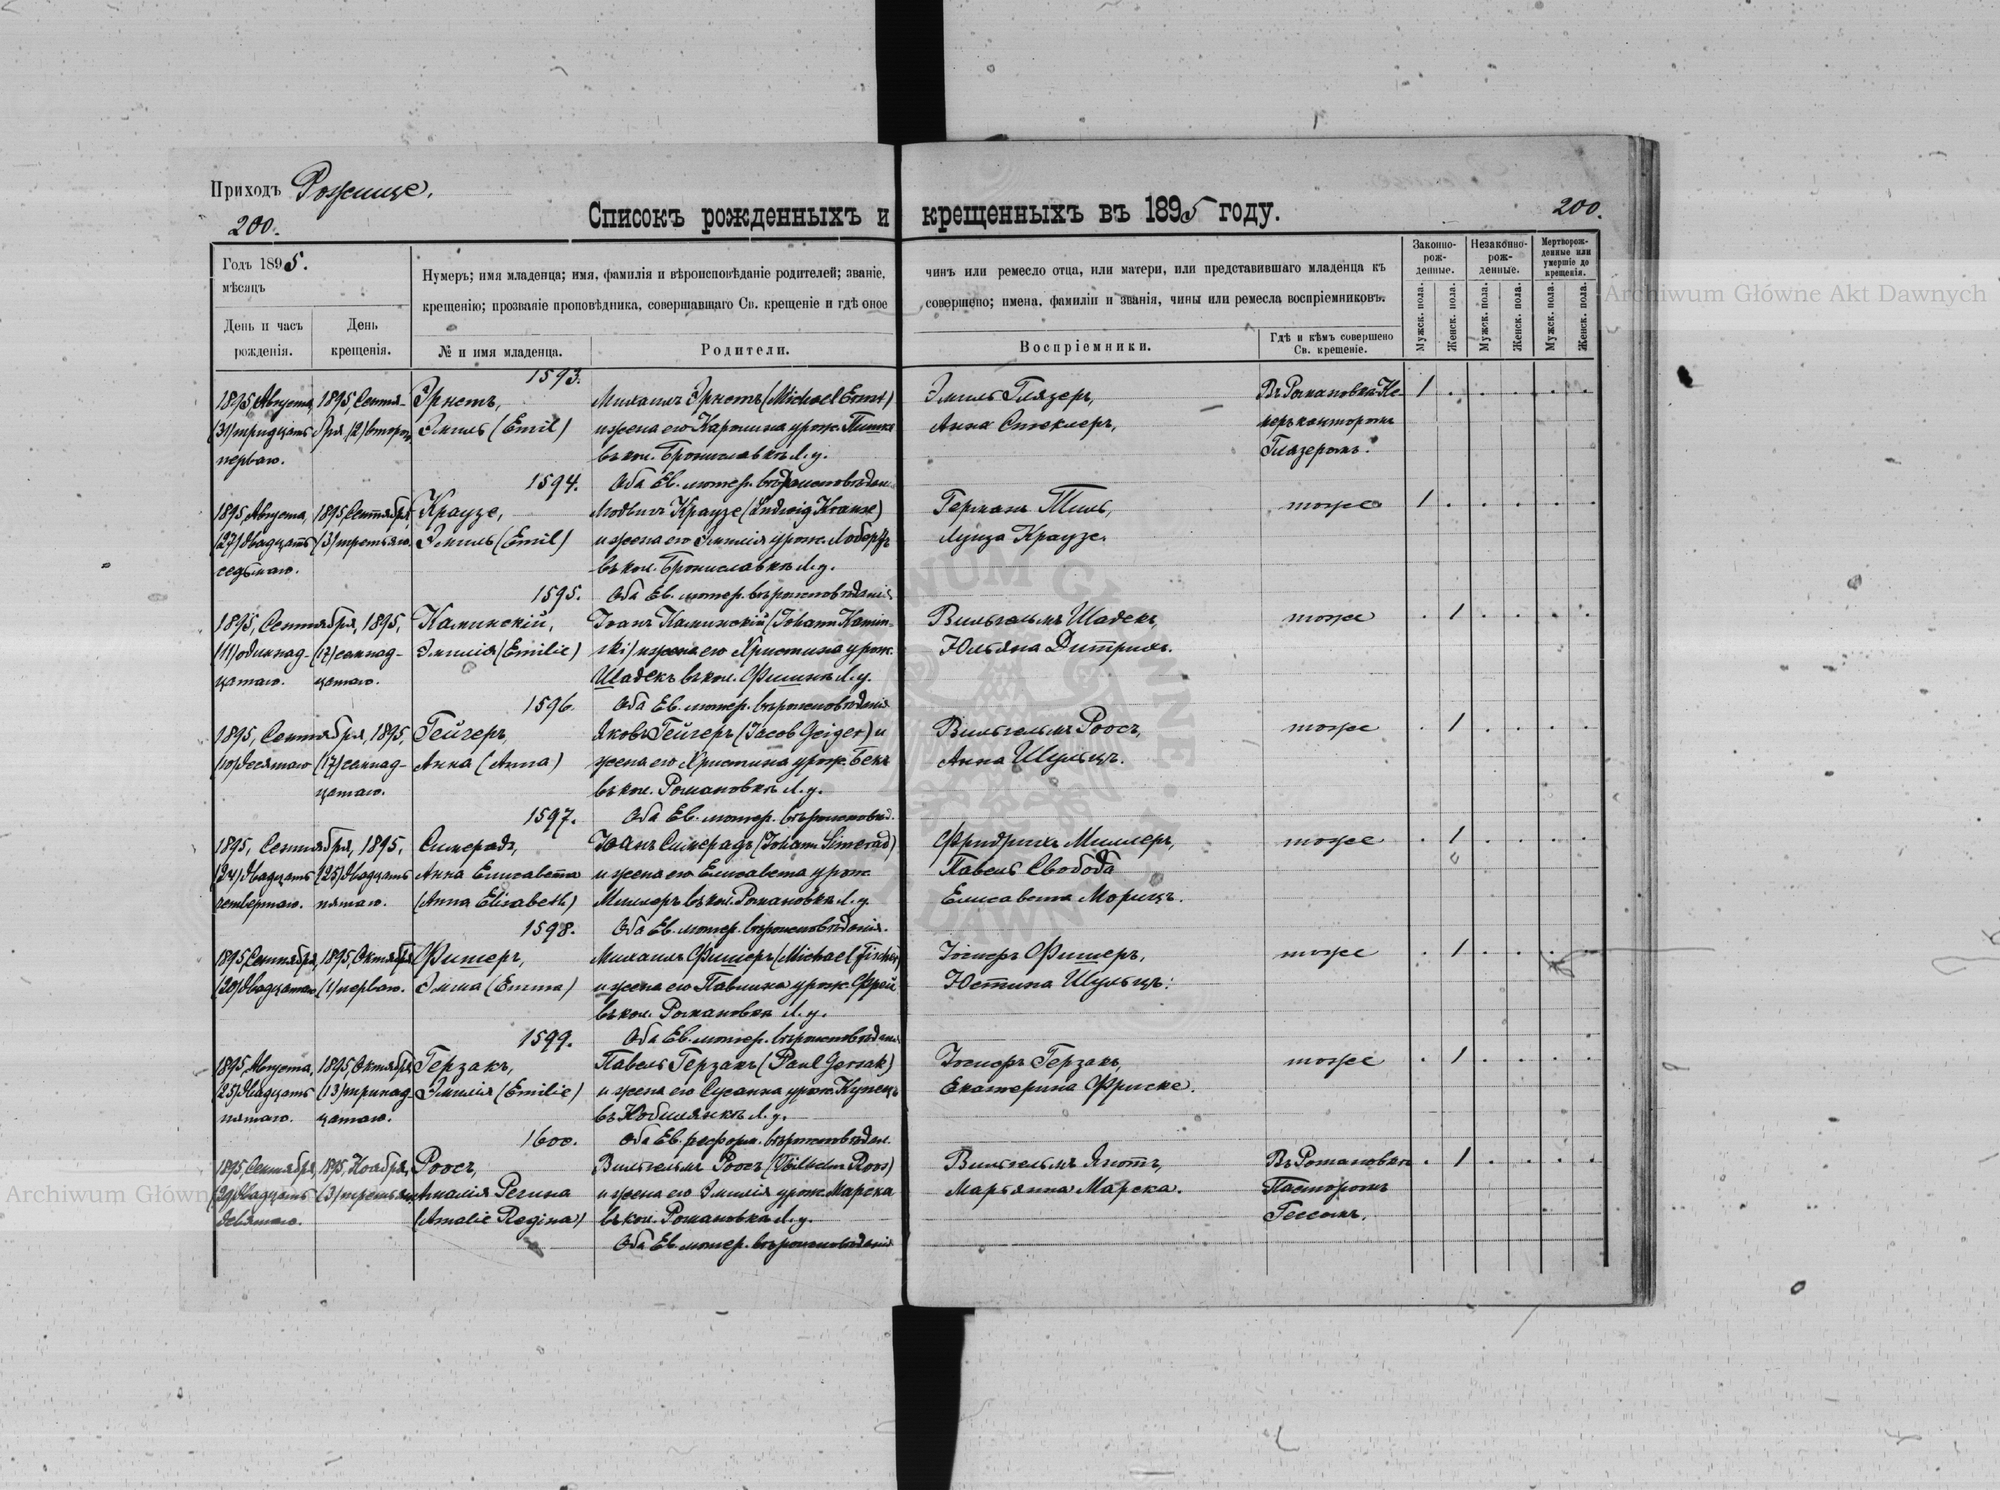 Приходъ Рожище.
200.
200.
Списокъ рожденныхъ и крещенныхъ въ 1895 году.
Годъ 1895.
мѣсяцъ
День и часъ рожденія.
День крещенія.
Нумеръ; имя младенца; имя, фамилія и вѣроисповѣданіе родителей; званіе, чинъ или ремесло отца, или матери, или представившаго младенца къ
крещенію; прозваніе проповѣдника, совершавшаго Св. крещеніе и гдѣ оное совершено; имена, фамиліи и званія, чины или ремесла воспріемниковъ.
№ и имя младенца.
Родители.
Воспріемники.
Гдѣ и кѣмъ совершено Св. крещеніе.
Законно-рож-денные.
Незаконно-рож-денные.
Мертворож-денные или умершіе до крещенія.
Мужск. пола.
Женск. пола.
Мужск. пола.
Женск. пола.
Мужск. пола.
Женск. пола.
1593.
1895, Августа, 1895, Сентя- Эрнстъ, Михаилъ Эрнстъ (Michael Ernst) Эмиль Глязеръ, Въ Романовкѣ 1
(31) тридцать бря (2) второго Эмиль (Emil) и жена его Каролина урож. Анна Стеклеръ, канторомъ
перваго. въ кол. Брониславкѣ Л. у. Глязеромъ.
1594. Оба Ев. лютер. вѣроисповѣдан.
1895, Августа, 1895 Сентября, Краузе, Людвигъ Краузе (Ludwig Krause) Германъ Тиль, тоже 1
(27) двадцать (3) третьяго. Эмиль (Emil) и жена его Эмилія урож. Луиза Краузе.
седьмаго. въ кол. Брониславкѣ Л. у.
1595. Оба Ев. лютер. вѣроисповѣданія
1895, Сентября, 1895, Каминскій, Іоанъ Каминскій (Johann Kamin- Вильгельмъ Шадекъ, тоже 1
(11) одиннад- (17) семнад- Эмилія (Emilie) ski) и жена его Христина урож. Юльяна Дитрихъ.
цатаго. цатаго. Шадекъ въ кол. Л. у.
1596. Оба Ев. лютер. вѣроисповѣданія
1895, Сентября, 1895, Гейгеръ Яковъ Гейгеръ (Jacob Geiger) и Вильгельмъ Роосъ, тоже 1
(10) десятаго (17) семнад- Анна (Anna) жена его Христина урож. Бекъ Анна Шульцъ.
цатаго. въ кол. Романовкѣ Л. у.
1597. Оба Ев. лютер. вѣроисповѣд.
1895, Сентября, 1895, Симерадъ, Іоанъ Симерадъ (Johann Simerad) Фридрихъ Миллеръ, тоже 1
(24) двадцать (25) двадцать Анна Елисавета и жена его Елисавета урож. Павелъ Свобода
четвертаго. пятаго. (Anna Elisabeth) Миллеръ въ кол. Романовкѣ Л. у. Елисавета Морицъ.
1598. Оба Ев. лютер. вѣроисповѣданія.
1895, Сентября, 1895, Октября Фишеръ, Михаилъ Фишеръ (Michael Fischer) Іосифъ Фишеръ, тоже 1
(20) двадцатаго (1) перваго. Эмма (Emma) и жена его Павлина урож. Фрей Юстина Шульцъ.
въ кол. Романовкѣ Л. у.
1599. Оба Ев. лютер. вѣроисповѣдан.
1895, Августа, 1895, Октября Герзакъ, Павелъ Герзакъ (Paul Gersak) Іосифъ Герзакъ, тоже 1
(25) двадцать (13) тринад- Эмилія (Emilie) и жена его Сусанна урож. Купецъ Екатерина Фриске.
пятаго. цатаго. въ Кобылянкѣ Л. у.
1600. Оба Ев. реформ. вѣроисповѣдан.
1895, Сентября, 1895, Ноября, Роосъ, Вильгельмъ Роосъ (Wilhelm Roos) Вильгельмъ Яхотъ, Въ Романовкѣ 1
(29) двадцать (3) третьяго Амалія Регина и жена его Эмилія урож. Марска Марьянна Марска. Пасторомъ
девятаго. (Amalie Regina) въ кол. Романовкѣ Л. у. Гессомъ.
Оба Ев. лютер. вѣроисповѣданія
Archiwum Główne Akt Dawnych